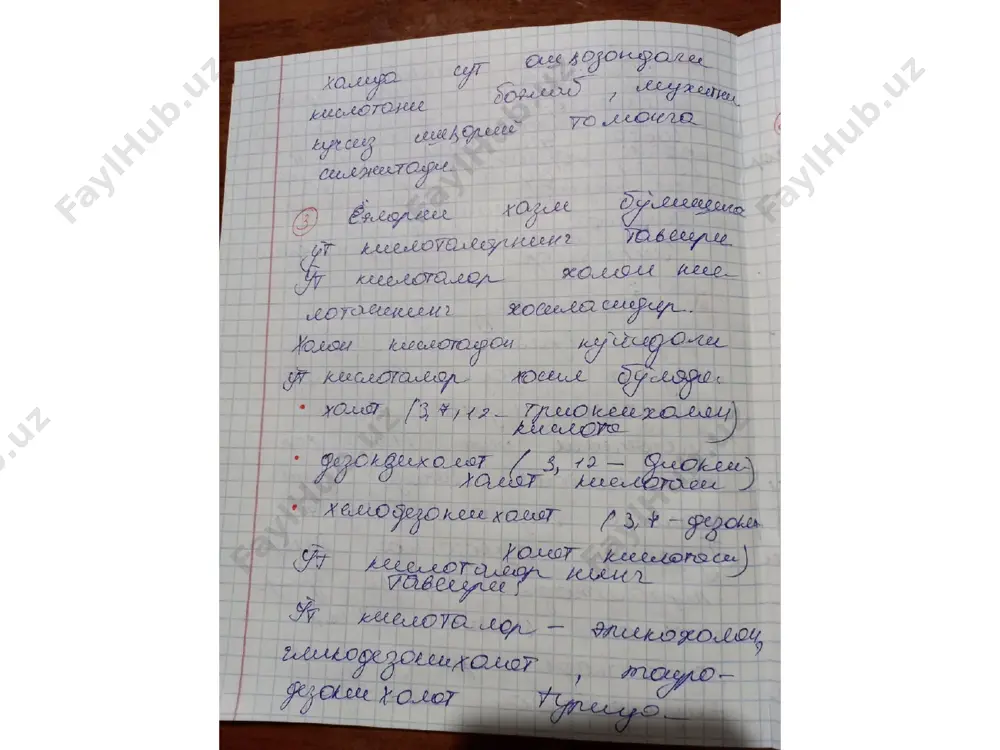 хамда сут ошқозондаги
кислотани боғлаб, мухитни
кучсиз ишқорий томонга
силжитади.
③ Ёғларни хазм бўлишига
ўт кислоталарнинг таъсири
Ўт кислоталар холан кис-
лотасининг хосиласидир.
Холан кислотадан қуйидаги
ўт кислоталар хосил бўлади.
• холат (3,7,12 - триоксихолан
кислота)
• дезоксихолат (3, 12 - диокси
холат кислотаси)
• хемодезоксихолат (3,7 - дезокси
холат кислотаси)
Ўт кислоталар нинг
таъсири;
Ўт кислоталар -
гликодезоксихолат, тауро-
дезоксихолат
FaylHub.uz
FaylHub.uz
FaylHub.uz
FaylHub.uz
FaylHub.uz
FaylHub.uz